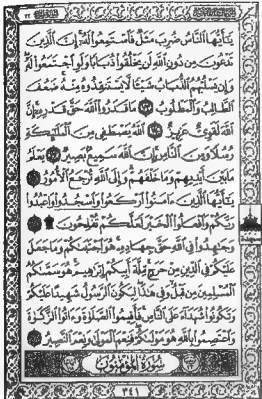 يَٰٓأَيُّهَا ٱلنَّاسُ ضُرِبَ مَثَلٌ فَٱسْتَمِعُوا۟ لَهُۥٓ إِنَّ ٱلَّذِينَ
تَدْعُونَ مِن دُونِ ٱللَّهِ لَن يَخْلُقُوا۟ ذُبَابًا وَلَوِ ٱجْتَمَعُوا۟ لَهُۥ
وَإِن يَسْلُبْهُمُ ٱلذُّبَابُ شَيْـًٔا لَّا يَسْتَنقِذُوهُ مِنْهُ ضَعُفَ
ٱلطَّالِبُ وَٱلْمَطْلُوبُ ٧٣ مَا قَدَرُوا۟ ٱللَّهَ حَقَّ قَدْرِهِۦٓ إِنَّ
ٱللَّهَ لَقَوِىٌّ عَزِيزٌ ٧٤ ٱللَّهُ يَصْطَفِى مِنَ ٱلْمَلَٰٓئِكَةِ
رُسُلًا وَمِنَ ٱلنَّاسِ إِنَّ ٱللَّهَ سَمِيعٌۢ بَصِيرٌ ٧٥ يَعْلَمُ
مَا بَيْنَ أَيْدِيهِمْ وَمَا خَلْفَهُمْ وَإِلَى ٱللَّهِ تُرْجَعُ ٱلْأُمُورُ ٧٦
يَٰٓأَيُّهَا ٱلَّذِينَ ءَامَنُوا۟ ٱرْكَعُوا۟ وَٱسْجُدُوا۟ وَٱعْبُدُوا۟
رَبَّكُمْ وَٱفْعَلُوا۟ ٱلْخَيْرَ لَعَلَّكُمْ تُفْلِحُونَ ۩ ٧٧
وَجَٰهِدُوا۟ فِى ٱللَّهِ حَقَّ جِهَادِهِۦ هُوَ ٱجْتَبَىٰكُمْ وَمَا جَعَلَ
عَلَيْكُمْ فِى ٱلدِّينِ مِنْ حَرَجٍ مِّلَّةَ أَبِيكُمْ إِبْرَٰهِيمَ هُوَ سَمَّىٰكُمُ
ٱلْمُسْلِمِينَ مِن قَبْلُ وَفِى هَٰذَا لِيَكُونَ ٱلرَّسُولُ شَهِيدًا عَلَيْكُمْ
وَتَكُونُوا۟ شُهَدَآءَ عَلَى ٱلنَّاسِ فَأَقِيمُوا۟ ٱلصَّلَوٰةَ وَءَاتُوا۟ ٱلزَّكَوٰةَ
وَٱعْتَصِمُوا۟ بِٱللَّهِ هُوَ مَوْلَىٰكُمْ فَنِعْمَ ٱلْمَوْلَىٰ وَنِعْمَ ٱلنَّصِيرُ ٧٨
سُورَةُ ٱلْمُؤْمِنُونَ
٣٤١